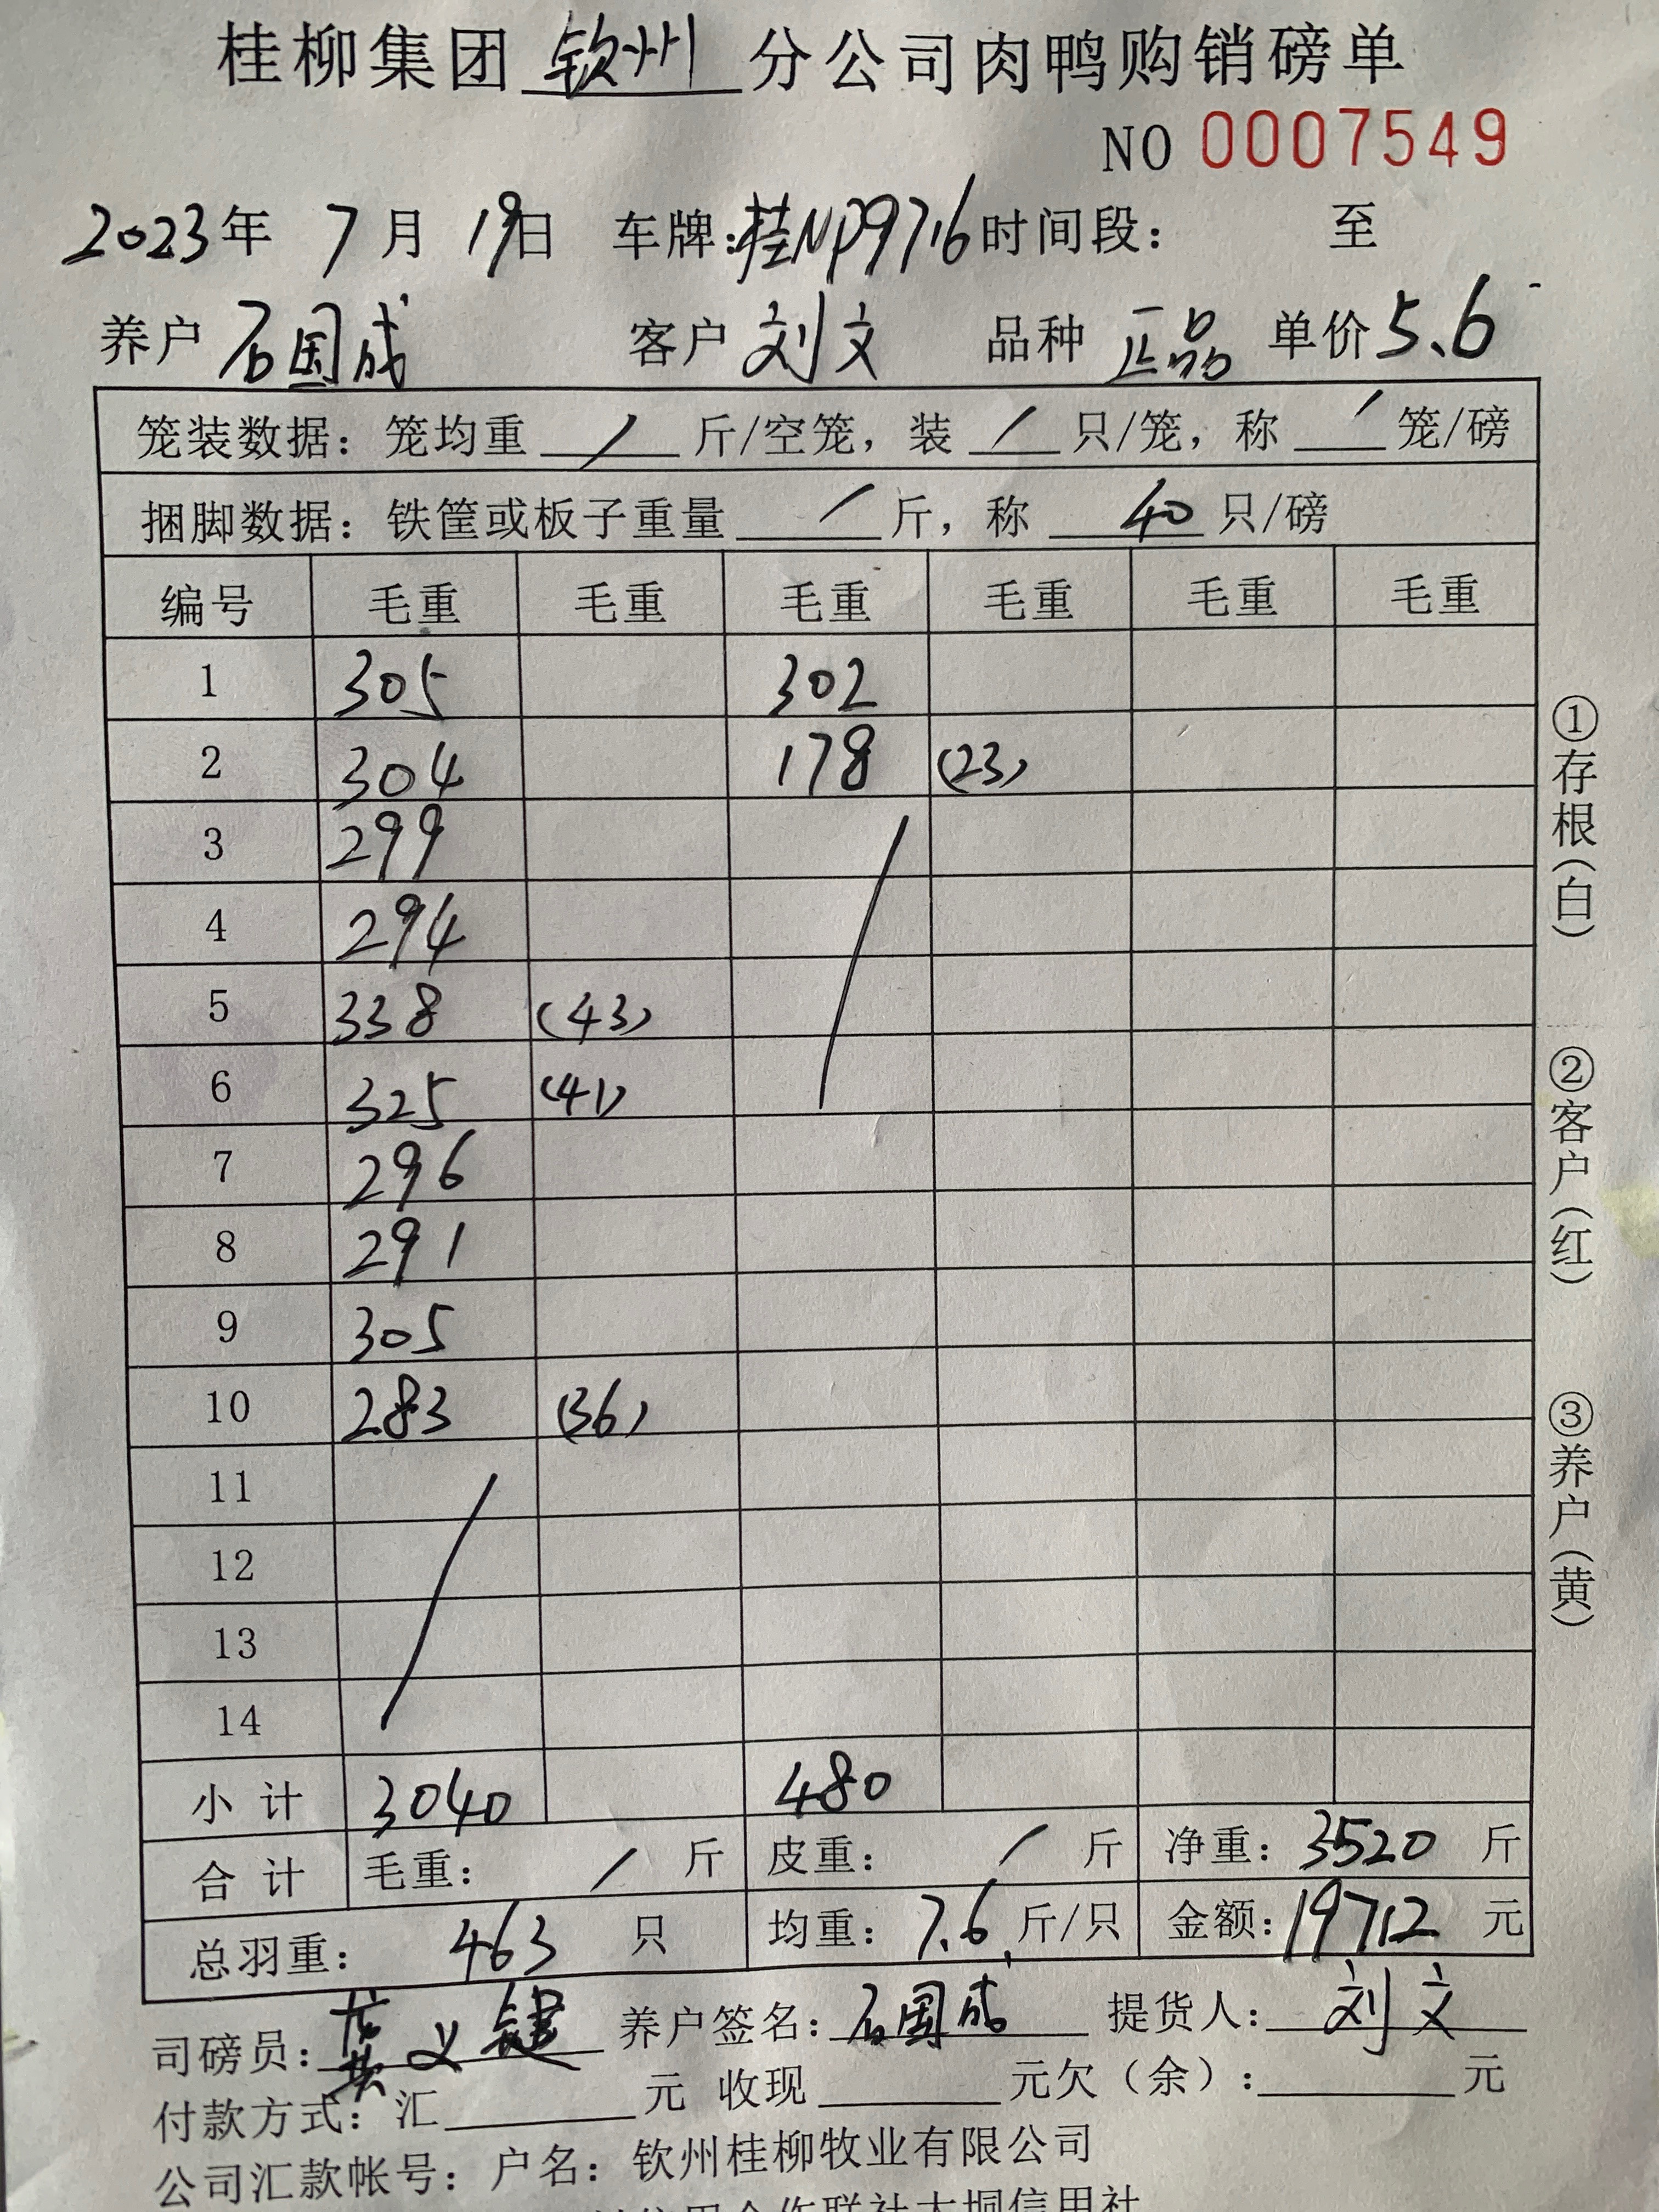 桂柳集团 钦州 分公司肉鸭购销磅单
NO 0007549
2023年 7月 19日 车牌:桂NP9716 时间段: 至
养户 石国成 客户 刘文 品种 正品 单价 5.6
笼装数据: 笼均重 / 斤/空笼, 装 / 只/笼, 称 / 笼/磅
捆脚数据: 铁筐或板子重量 / 斤, 称 40 只/磅
编号 毛重 毛重 毛重 毛重 毛重 毛重
1 305 302
2 304 178 (23)
3 299
4 294
5 338 (43)
6 325 (41)
7 296
8 291
9 305
10 283 (36)
11
12
13
14
小计 3040 480
合计 毛重: / 斤 皮重: / 斤 净重: 3520 斤
总羽重: 463 只 均重: 7.6 斤/只 金额: 19712 元
司磅员: 龚义键 养户签名: 石国成 提货人: 刘文
付款方式: 汇 元 收现 元欠（余）: 元
公司汇款帐号: 户名: 钦州桂柳牧业有限公司
信用合作联社大垌信用社
①存根（白）
②客户（红）
③养户（黄）